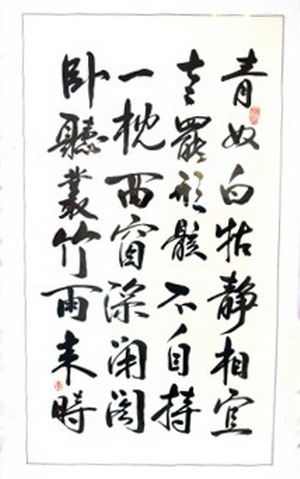 青奴白牯靜相宜
老罷形骸不自持
一枕西窗深閉閣
卧聽叢竹雨来時